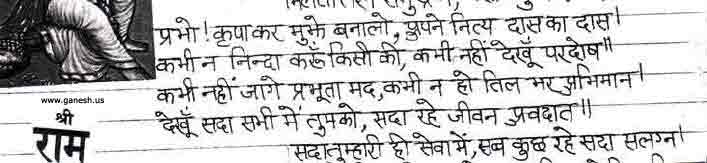 प्रभो! कृपा कर मुझे बनालो, अपने नित्य दास का दास।
कभी न निन्दा करूँ किसी की, कभी नहीं देखूँ परदोष॥
कभी नहीं जागे प्रभूता मद, कभी न हो तिल भर अभिमान।
www.ganesh.us
देखूँ सदा सभी में तुमको, सदा रहे जीवन अवदात॥
श्री
राम
सदा तुम्हारी ही सेवा में, सब कुछ रहे सदा सलग्न।